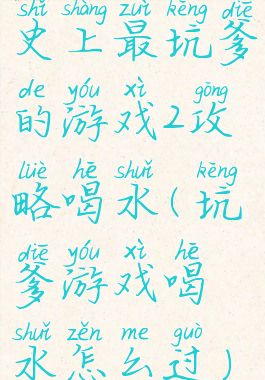 shǐ shàng zuì kēng diē
史上最坑爹
de yóu xì gōng
的游戏2攻
lüè hē shuǐ kēng
略喝水(坑
diē yóu xì hē
爹游戏喝
shuǐ zěn me guò
水怎么过)